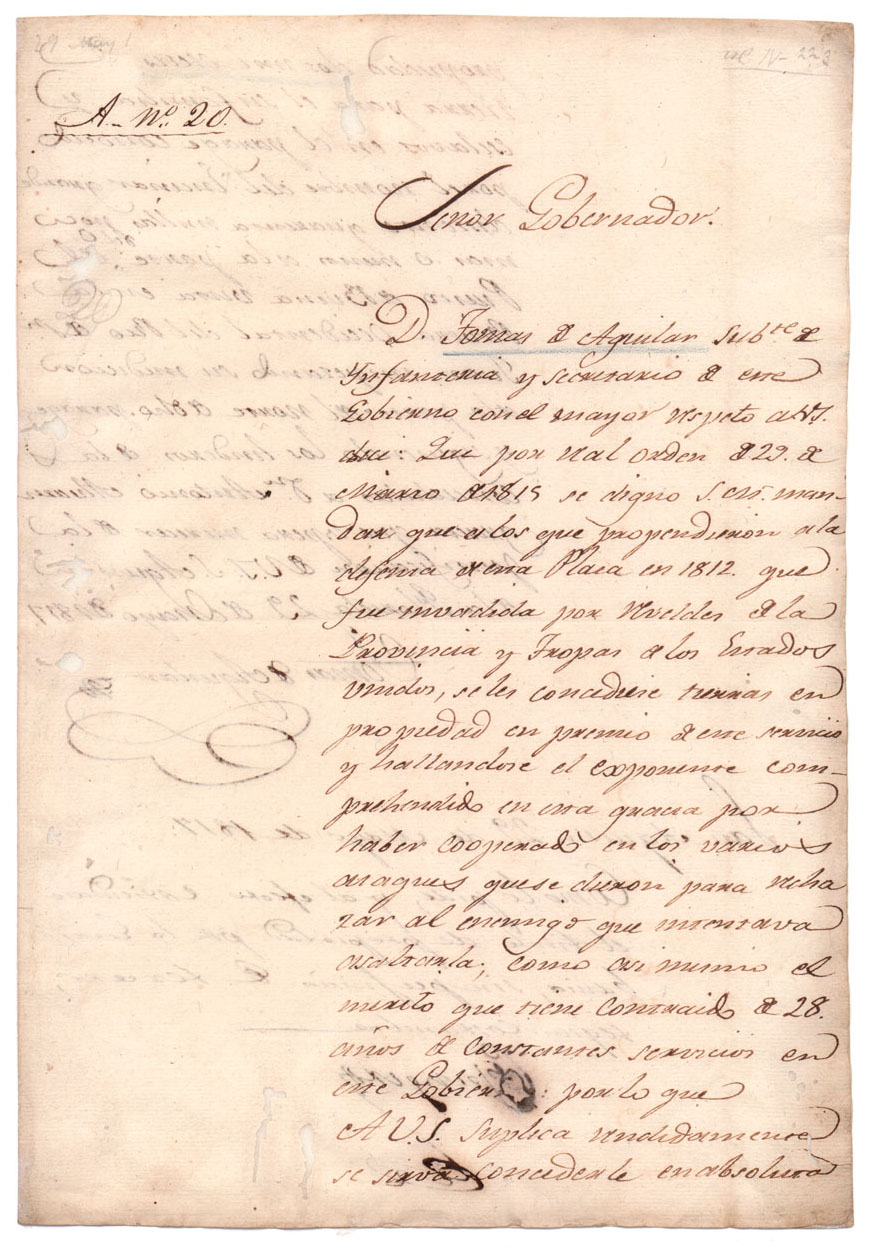 A. nº. 20.
Señor Gobernador.
D. Tomas de Aguilar Subte. de
Ynfanteria y secretario de este
Gobierno con el mayor respeto a V.S.
dice: Que por real orden de 29. de
Marzo de 1815 se digno S. M. man-
dar que a los que propendieron a la
defensa de esta Plaza en 1812. que
fue invadida por reveldes de la
Provincia y Tropas de los Estados
vnidos, se les concediese tierras en
propiedad en premio de este servicio
y hallandose el exponente com-
prehendido en esta gracia por
haber cooperado en los varios
ataques que se dieron para recha
zar al enemigo que intentava
asaltarla; como asi mismo el
merito que tiene contraido de 28.
años de constantes servicios en
este Gobierno: por lo que
A V.S. suplica rendidamente
se sirva concederle en absoluta